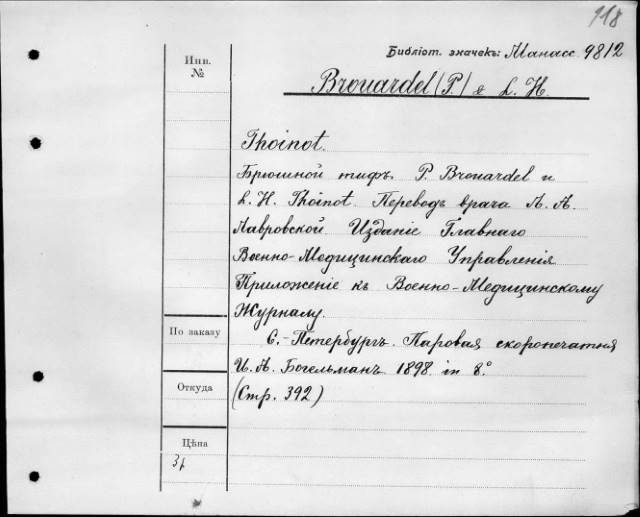 918
Библіот. значекъ: Манасс. 9812
Инв.
№
Brouardel (P.) & L. H.
Thoinot.
Брюшной тифъ. P. Brouardel и
L. H. Thoinot. Переводъ врача А. А.
Лавровской. Изданіе Главнаго
Военно-Медицинскаго Управленія
Приложеніе къ Военно-Медицинскому
Журналу.
По заказу
С.-Петербургъ. Паровая скоропечатня
И. А. Богельманъ 1898. in 8°.
Откуда
(Стр. 392)
Цѣна
3р